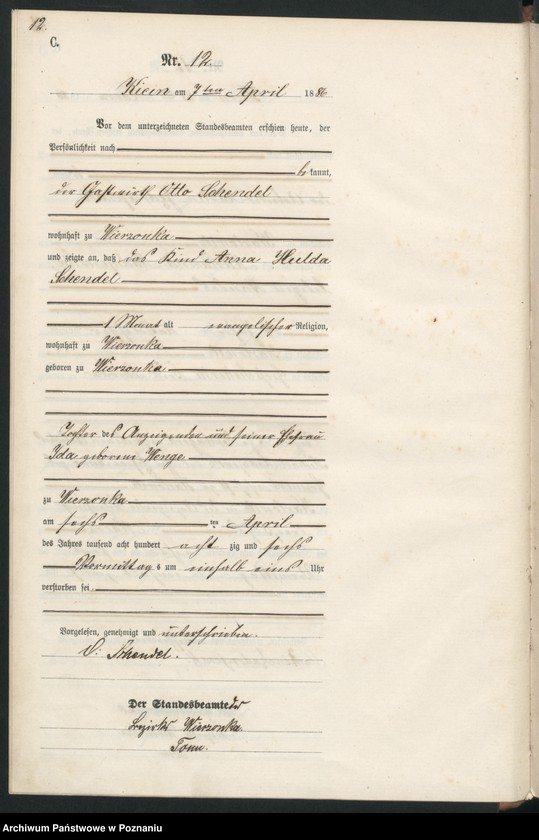 12.
C.
Nr. 12.
Kicin am 7ten April 1886
Vor dem unterzeichneten Standesbeamten erschien heute, der
Persönlichkeit nach
bekannt,
der Gastwirth Otto Schendel
wohnhaft zu Wierzonka
und zeigte an, daß das Kind Anna Hulda
Schendel
1 Monat alt evangelischer Religion,
wohnhaft zu Wierzonka
geboren zu Wierzonka
Tochter des Anzeigenden und seiner Ehefrau
Ida geborene Wenge
zu Wierzonka
am sechsten April
des Jahres tausend acht hundert achtzig und sechs
Vormittags um einhalb eins Uhr
verstorben sei.
Vorgelesen, genehmigt und unterschrieben.
O. Schendel.
Der Standesbeamte des
Bezirks Wierzonka.
Archiwum Państwowe w Poznaniu